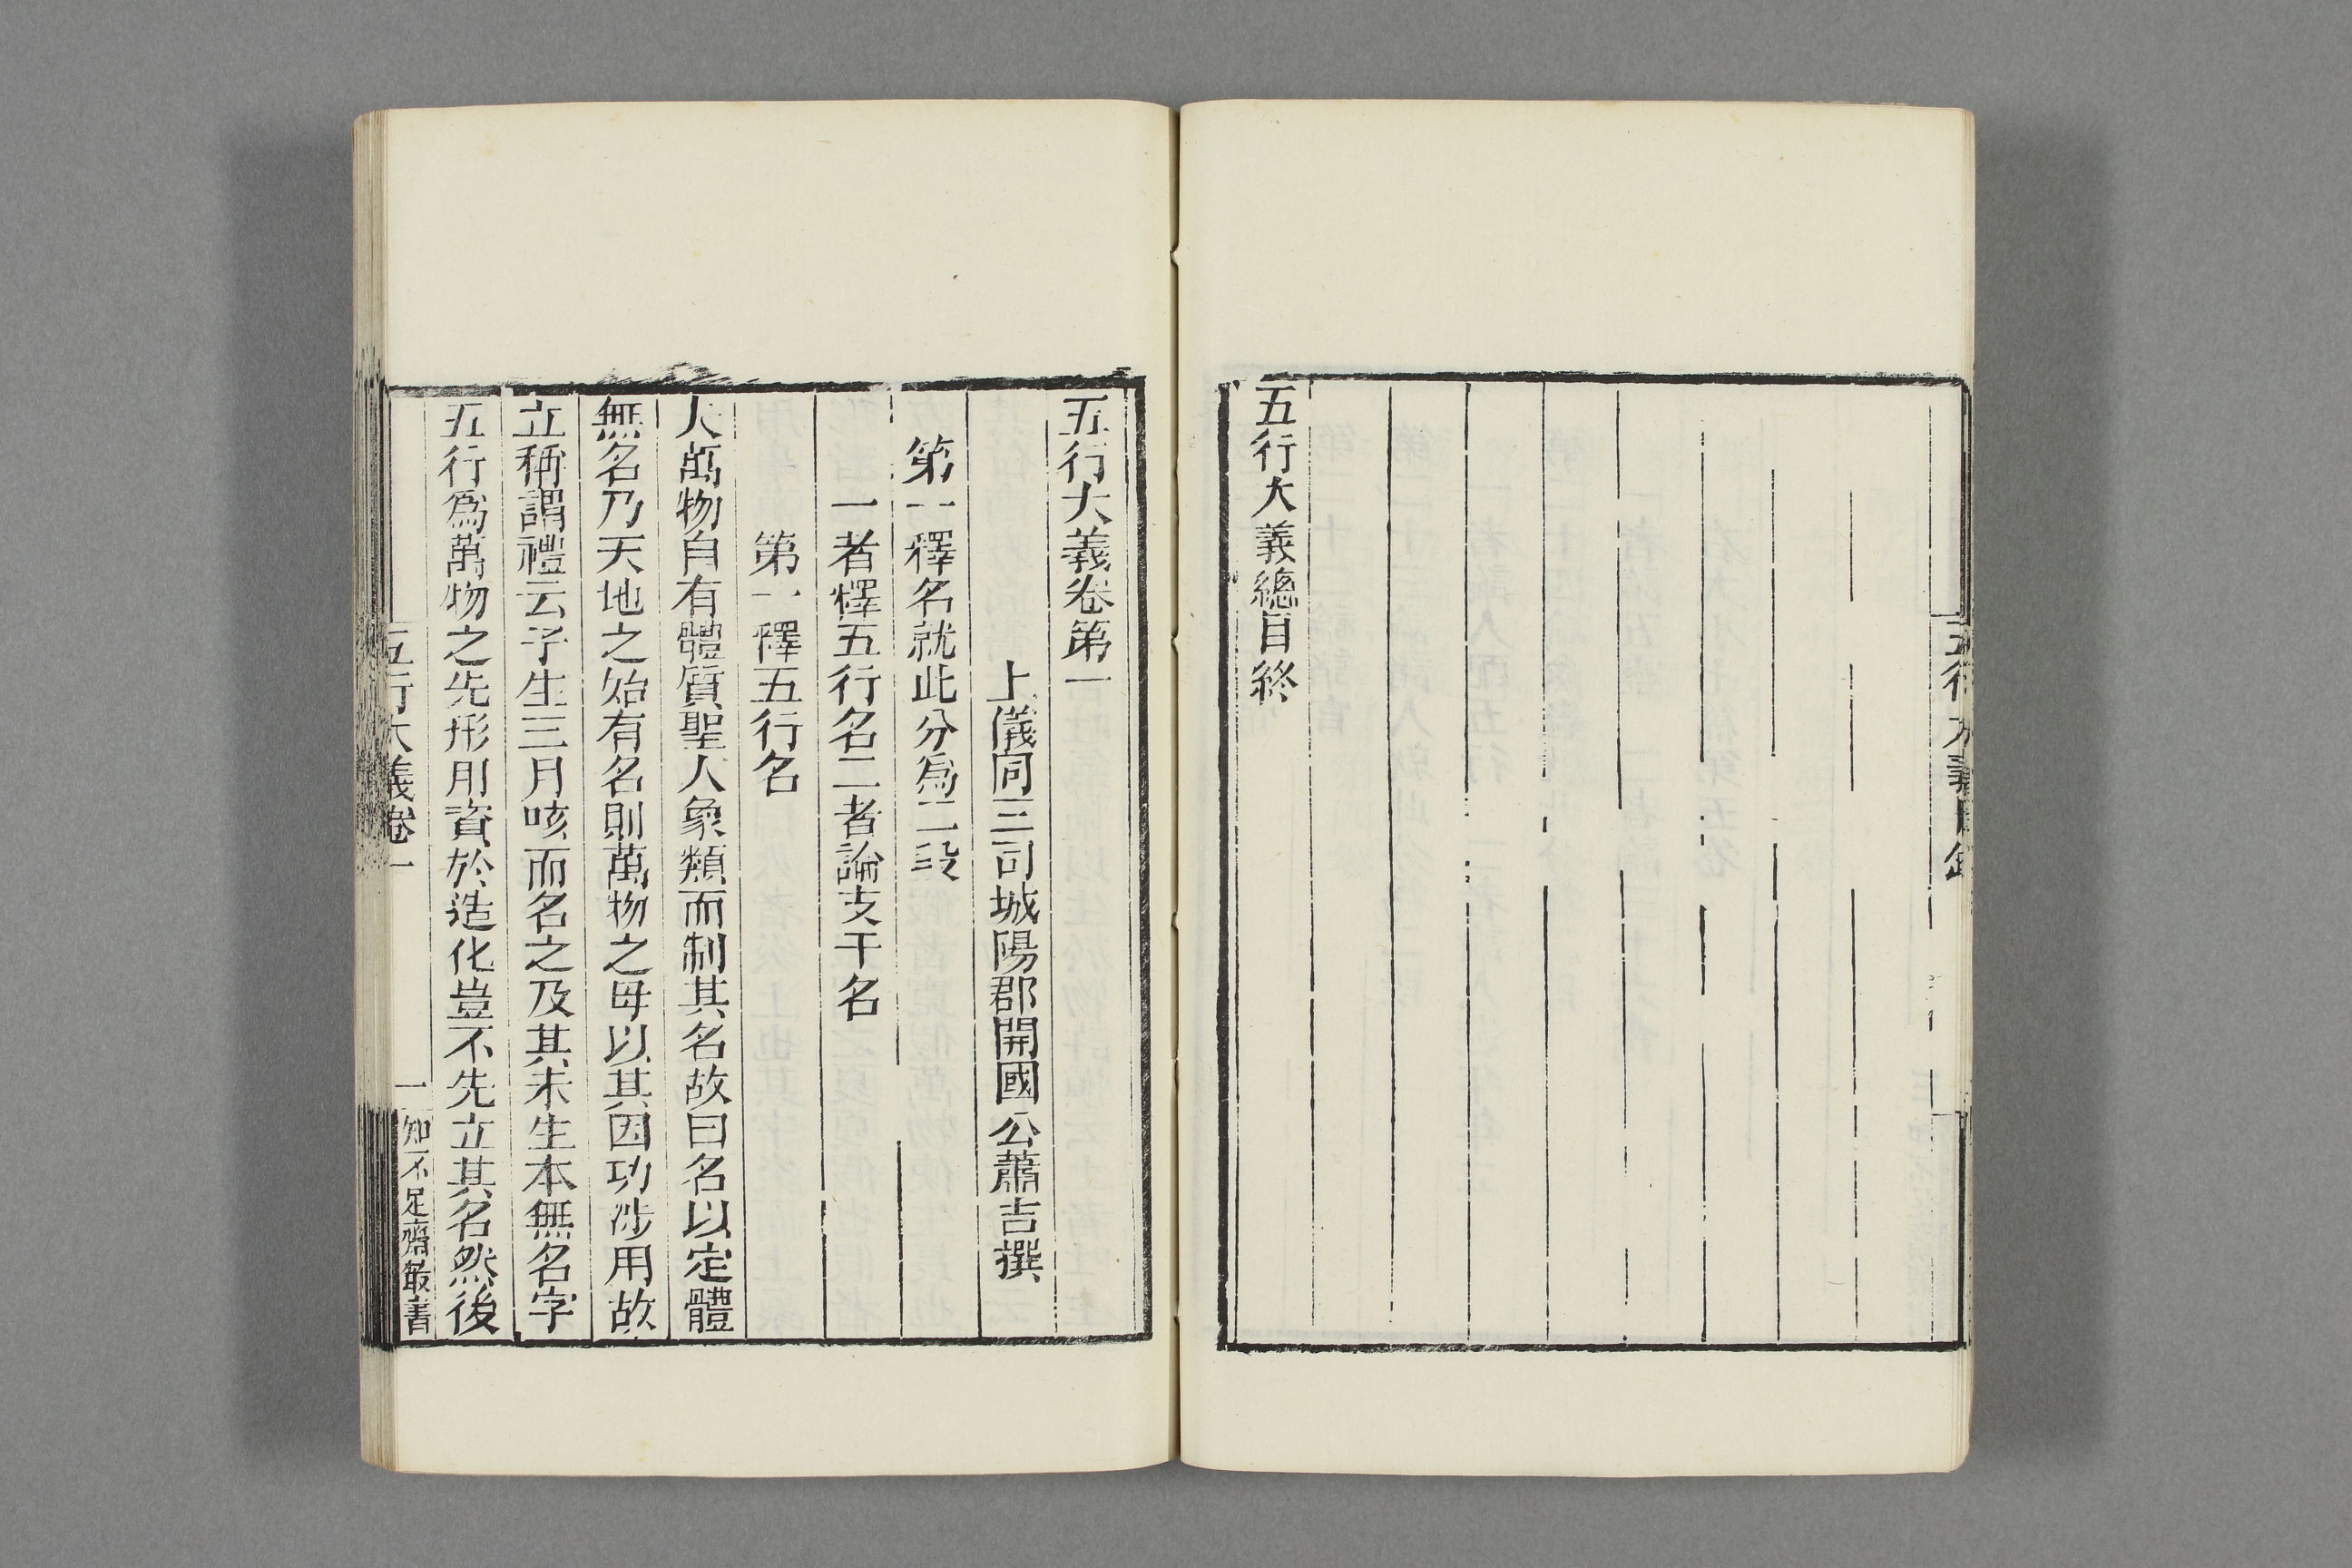 五行大義目錄
五行大義總目終
五行大義卷第一
上儀同三司城陽郡開國公蕭吉撰
第一釋名就此分爲二段
一者釋五行名二者論支干名
第一釋五行名
夫萬物自有體質聖人象類而制其名故曰名以定體
無名乃天地之始有名則萬物之母以其因功涉用故
立稱謂禮云子生三月咳而名之及其未生本無名字
五行爲萬物之先形用資於造化豈不先立其名然後
五行大義卷一
一
知不足齋叢書